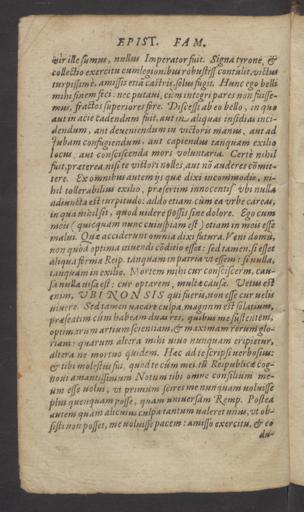 EPIST. FAM.
vir ille summus, nullus Imperator fuit. Signa tyrone, &
collectio exercitu cum legionibus robustiss. contulit, victus
turpissimè, amissis etiā castris, solus fugit. Hunc ego belli
mihi finem feci: nec putaui, cùm integri pares non fuisse-
mus, fractos superiores fore. Discessi ab eo bello, in quo
aut in acie cadendum fuit, aut in aliquas insidias inci-
dendum, aut deueniendum in victoris manus, aut ad
Iubam confugiendum, aut capiendus tanquam exilio
locus, aut consciscenda mors voluntaria. Certè nihil
fuit præterea, nisi te victori nolles, aut nō auderes cōmit-
tere. Ex omnibus autem iis quæ dixi incommodis, ni-
hil tollerabilius exilio, præsertim innocenti, vbi nulla
adiuncta est turpitudo: addo etiam cùm ea vrbe careas,
in qua nihil sit, quod videre possis sine dolore. Ego cum
meis (quicquam nunc cuiuspiam est) etiam in meis esse
malui. Quæ acciderunt omnia dixi futura. Veni domū,
non quòd optima viuendi cōditio esset: sed tamen, si esset
aliqua forma Reip. tanquam in patria vt essem: si nulla,
tanquam in exilio. Mortem mihi cur consciscerem, cau-
sa nulla visa est: cur optarem, multæ causæ. Vetus est
enim, VBI NON SIS qui fueris, non esse cur velis
viuere. Sed tamen vacare culpa, magnum est solatium,
præsertim cùm habeam duas res, quibus me sustentem,
optimarum artium scientiam, & maximarum rerum glo-
riam: quarum altera mihi viuo nunquam eripietur,
altera ne mortuo quidem. Hæc ad te scripsi verbosius:
& tibi molestus fui, quòd te cùm mei, tū Reipublicæ cog-
noui amantissimum. Notum tibi omne consilium me-
um esse volui, vt primum scires me nunquam voluisse
plus quenquam posse, quàm vniuersam Remp. Postea
autem quàm alicuius culpa tantum valeret vnus, vt ob-
sisti non posset, me voluisse pacem: amisso exercitu, & eo
du-